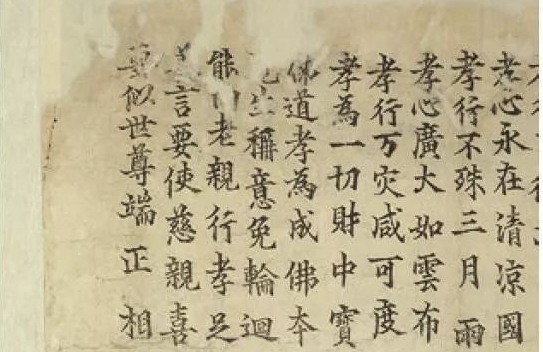 孝心永在清凉國
孝行不殊三月雨
孝心廣大如雲布
孝行万灾咸可度
孝為一切財中寶
佛道孝為成佛本
生稱意免輪迴
能老親行孝足
言要使慈親喜
似世尊端正相